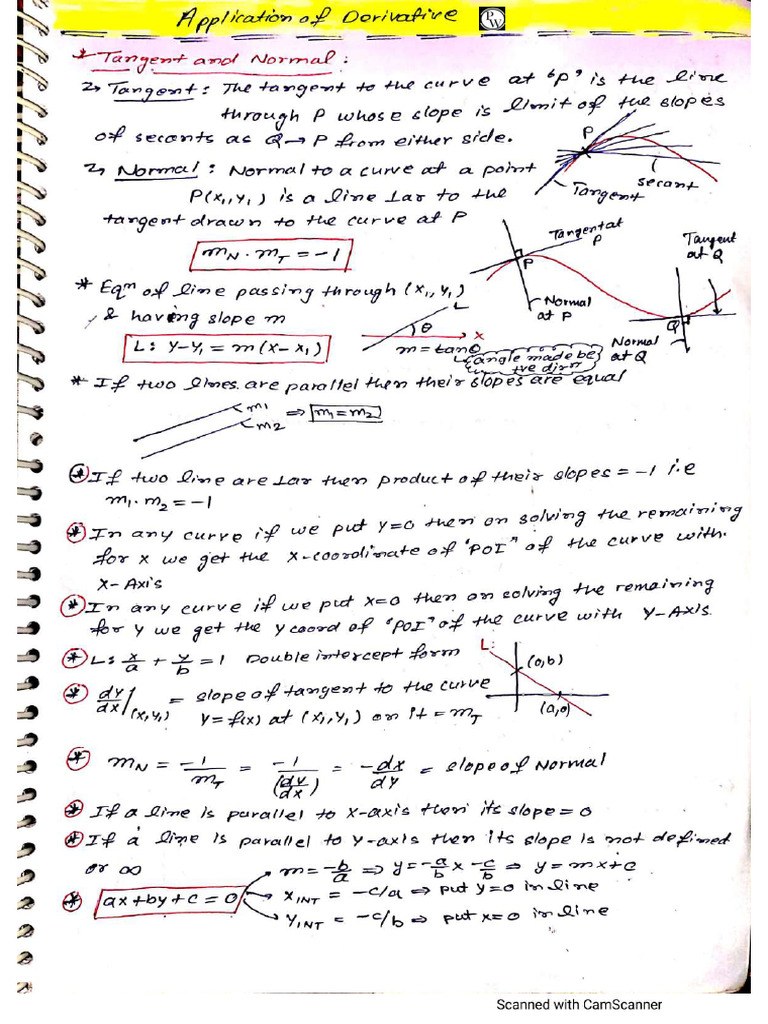 Application of Derivative PW
* Tangent and Normal:
Tangent: The tangent to the curve at "P" is the line
through P whose slope is limit of the slopes
of secants as Q→P from either side.
P
Tangent
secant
Normal: Normal to a curve at a point
P(x₁,y₁) is a line ⊥ar to the
tangent drawn to the curve at P
mN · mT = -1
Tangent at P
P
Normal at P
Tangent at Q
Q
Normal at Q
* Eqⁿ of line passing through (x₁, y₁)
& having slope m
L: y-y₁ = m(x-x₁)
L
θ
x
m = tanθ
angle made be
+ve dirⁿ
* If two lines are parallel then their slopes are equal
m1
m2
⇒ m₁ = m₂
* If two line are ⊥ar then product of their slopes = -1 i.e
m₁· m₂ = -1
* In any curve if we put y=0 then on solving the remaining
for x we get the x-coordinate of "POI" of the curve with
X-Axis
* In any curve if we put x=0 then on solving the remaining
for y we get the y coord of "POI" of the curve with Y-Axis.
* L: x/a + y/b = 1 Double intercept form
L:
(0,b)
(a,0)
* dy/dx](x₁,y₁) = slope of tangent to the curve
y = f(x) at (x₁,y₁) on it = mT
* mN = -1/mT = -1/(dy/dx) = -dx/dy = slope of Normal
* If a line is parallel to x-axis then its slope = 0
* If a line is parallel to y-axis then its slope is not defined
or ∞
* ax+by+c = 0
m = -b/a ⇒ y = -a/b x -c/b ⇒ y = mx+c
xINT = -c/a ⇒ put y=0 in line
yINT = -c/b ⇒ put x=0 in line
Scanned with CamScanner